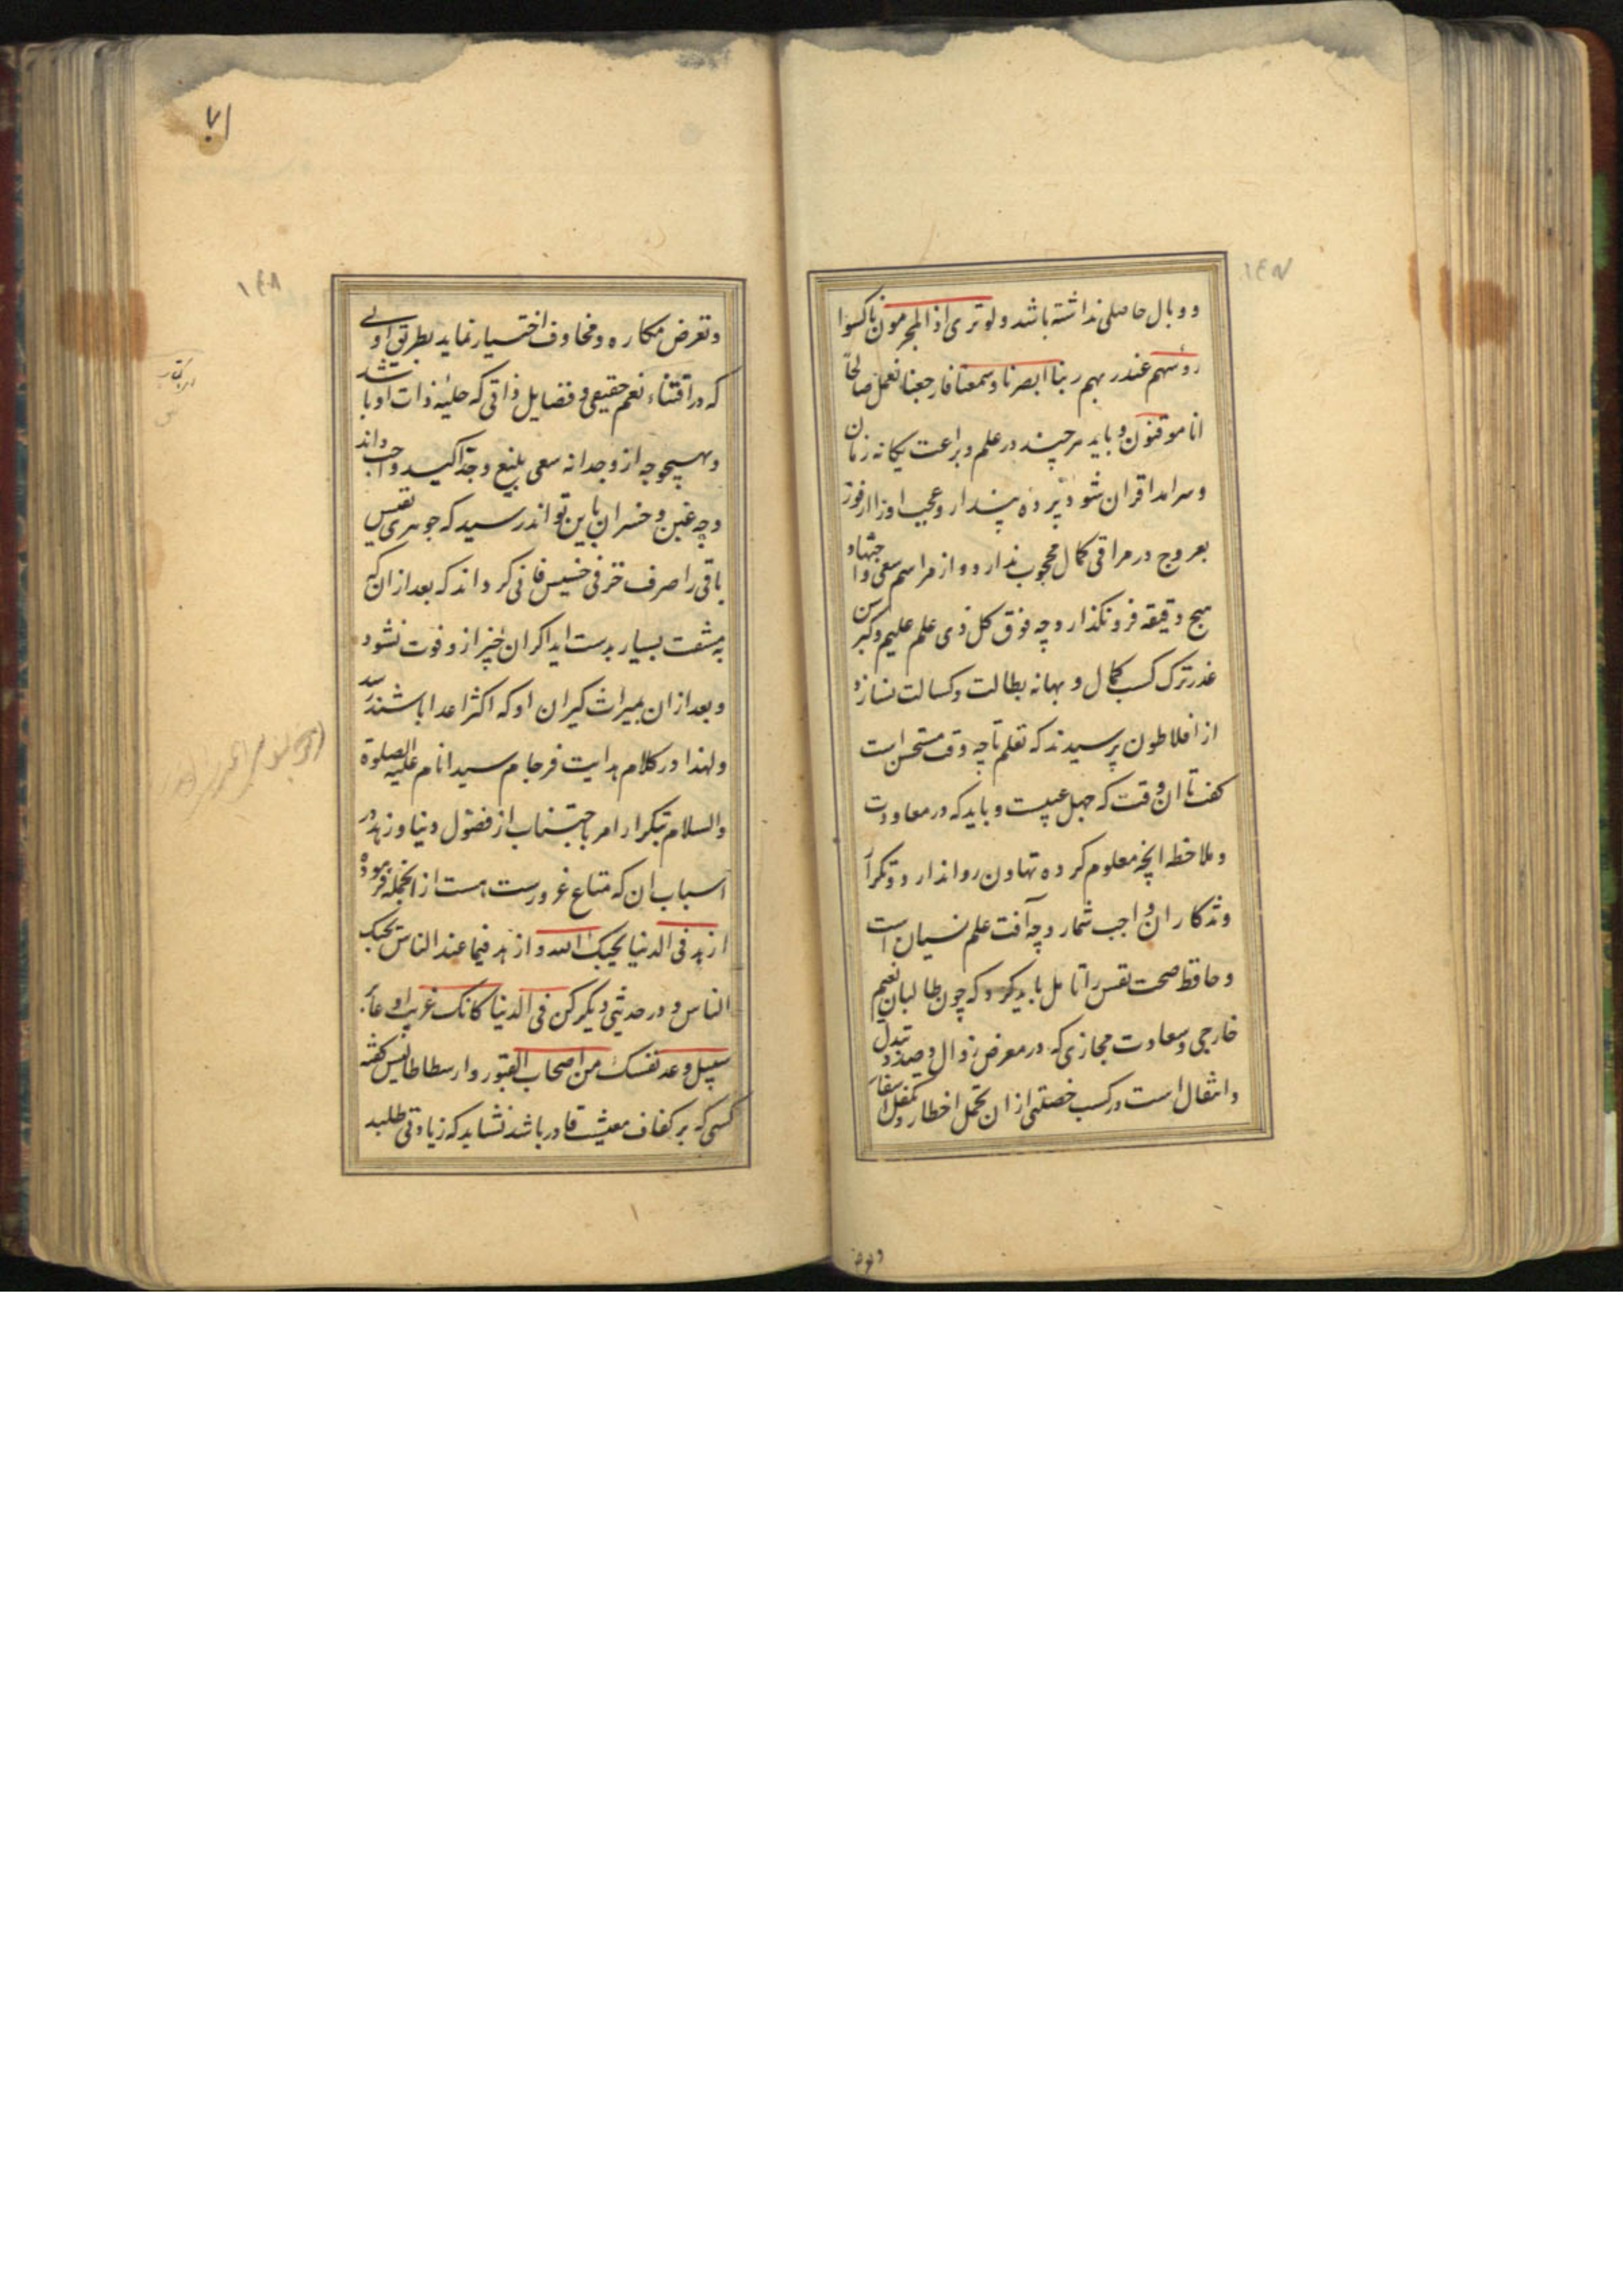 ۱۴۷
و وبال حاصلی نداشته باشد ولو تری اذ المجرمون ناکسوا
رؤسهم عند ربهم ربنا ابصرنا وسمعنا فارجعنا نعمل صالحاً
انا موقنون و باید هرچند در علم و براعت یکانه زمان
و سرامد اقران شود پرده پندار و عجب او را از فوز
بعروج در مراقی کمال محجوب ندارد و از مراسم سعی و اجتهاد
هیچ دقیقه فرو نکذارد چه فوق کل ذی علم علیم و کبر سن
عذر ترک کسب کمال و بهانه بطالت و کسالت نسازد
از افلاطون پرسیدند که تعلم تا چه وقت مستحسن است
کفت تا ان وقت که جهل عیبست و باید که در معاودت
و ملاحظه انچه معلوم کرده تهاون روا ندارد و تکرار
و تذکار ان واجب شمارد چه آفت علم نسیان است
و حافظ صحت نفس را تامل باید کرد که چون طالبان نعیم
خارجی و سعادت مجازی که در معرض زوال و صدد تبدل
و انتقال است در کسب خصلتی از ان تحمل اخطار و تکفل اسفار
۷۱
۱۴۸
و تعرض مکاره و مخاوف اختیار نماید بطریق اولی
که در اقتناء نعم حقیقی و فضایل ذاتی که حلیۀ ذات او باشند
و بهیچوجه از و جدا نه سعی بلیغ و جد اکید واجب داند
و چه غبن و خسران باین تواند رسید که جوهری نفیس
باقی را صرف خزفی خسیس فانی کرداند که بعد از ان که
به مشقت بسیار بدست اید اکر ان خیر از و فوت نشود
و بعد از ان بمیراث کیران او که اکثر اعدا باشند رسد
و لهذا در کلام هدایت فرجام سید انام علیه الصلوة
والسلام بتکرار امر باجتناب از فضول دنیا و زهد در
اسباب ان که متاع غرورست هست از انجمله فرموده
ازهد فی الدنیا یحبک الله و ازهد فیما عند الناس یحبک
الناس و در حدیثی دیکر کن فی الدنیا کانک غریب او عابر
سبیل و عد نفسک من اصحاب القبور و ارسطاطالیس کفته
کسی که بر کفاف معیشت قادر باشد نشاید که زیادتی طلبد